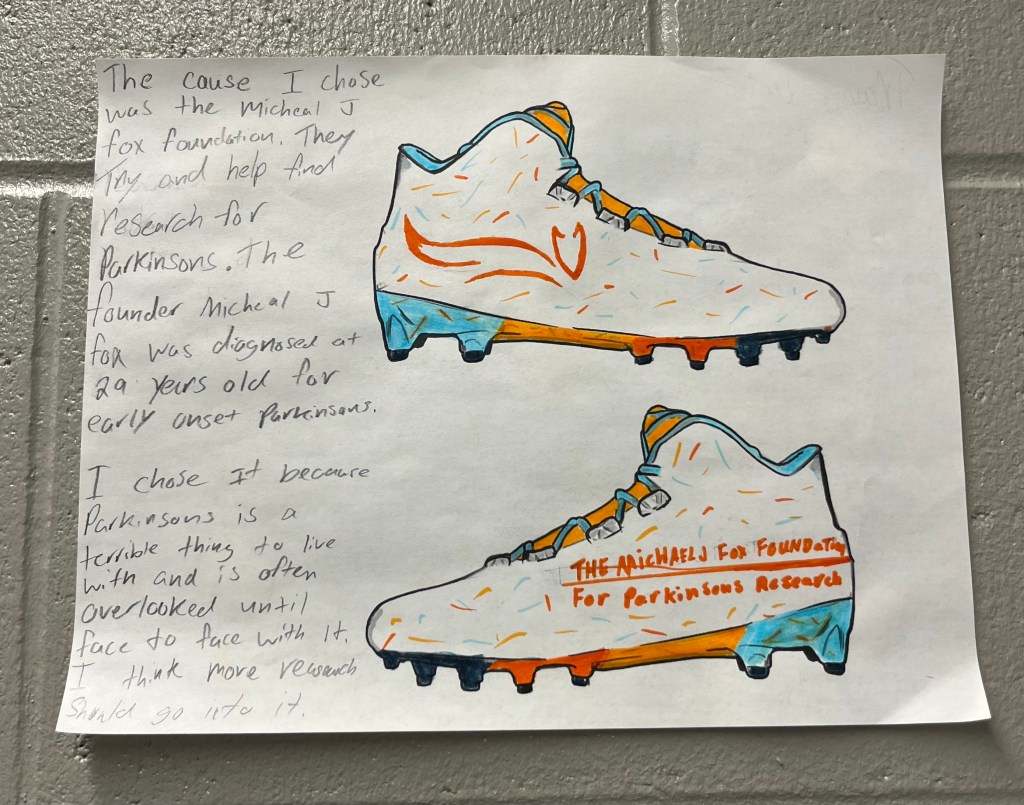 The cause I chose
was the Micheal J
fox foundation. They
Try and help find
research for
Parkinsons. The
founder Micheal J
fox was diagnosed at
29 years old for
early onset Parkinsons.
I chose It because
Parkinsons is a
terrible thing to live
with and is often
overlooked until
face to face with It.
I think more research
Should go into it.
THE MiCHAEL J FOX FOUNDATION
FOR Parkinsons Research